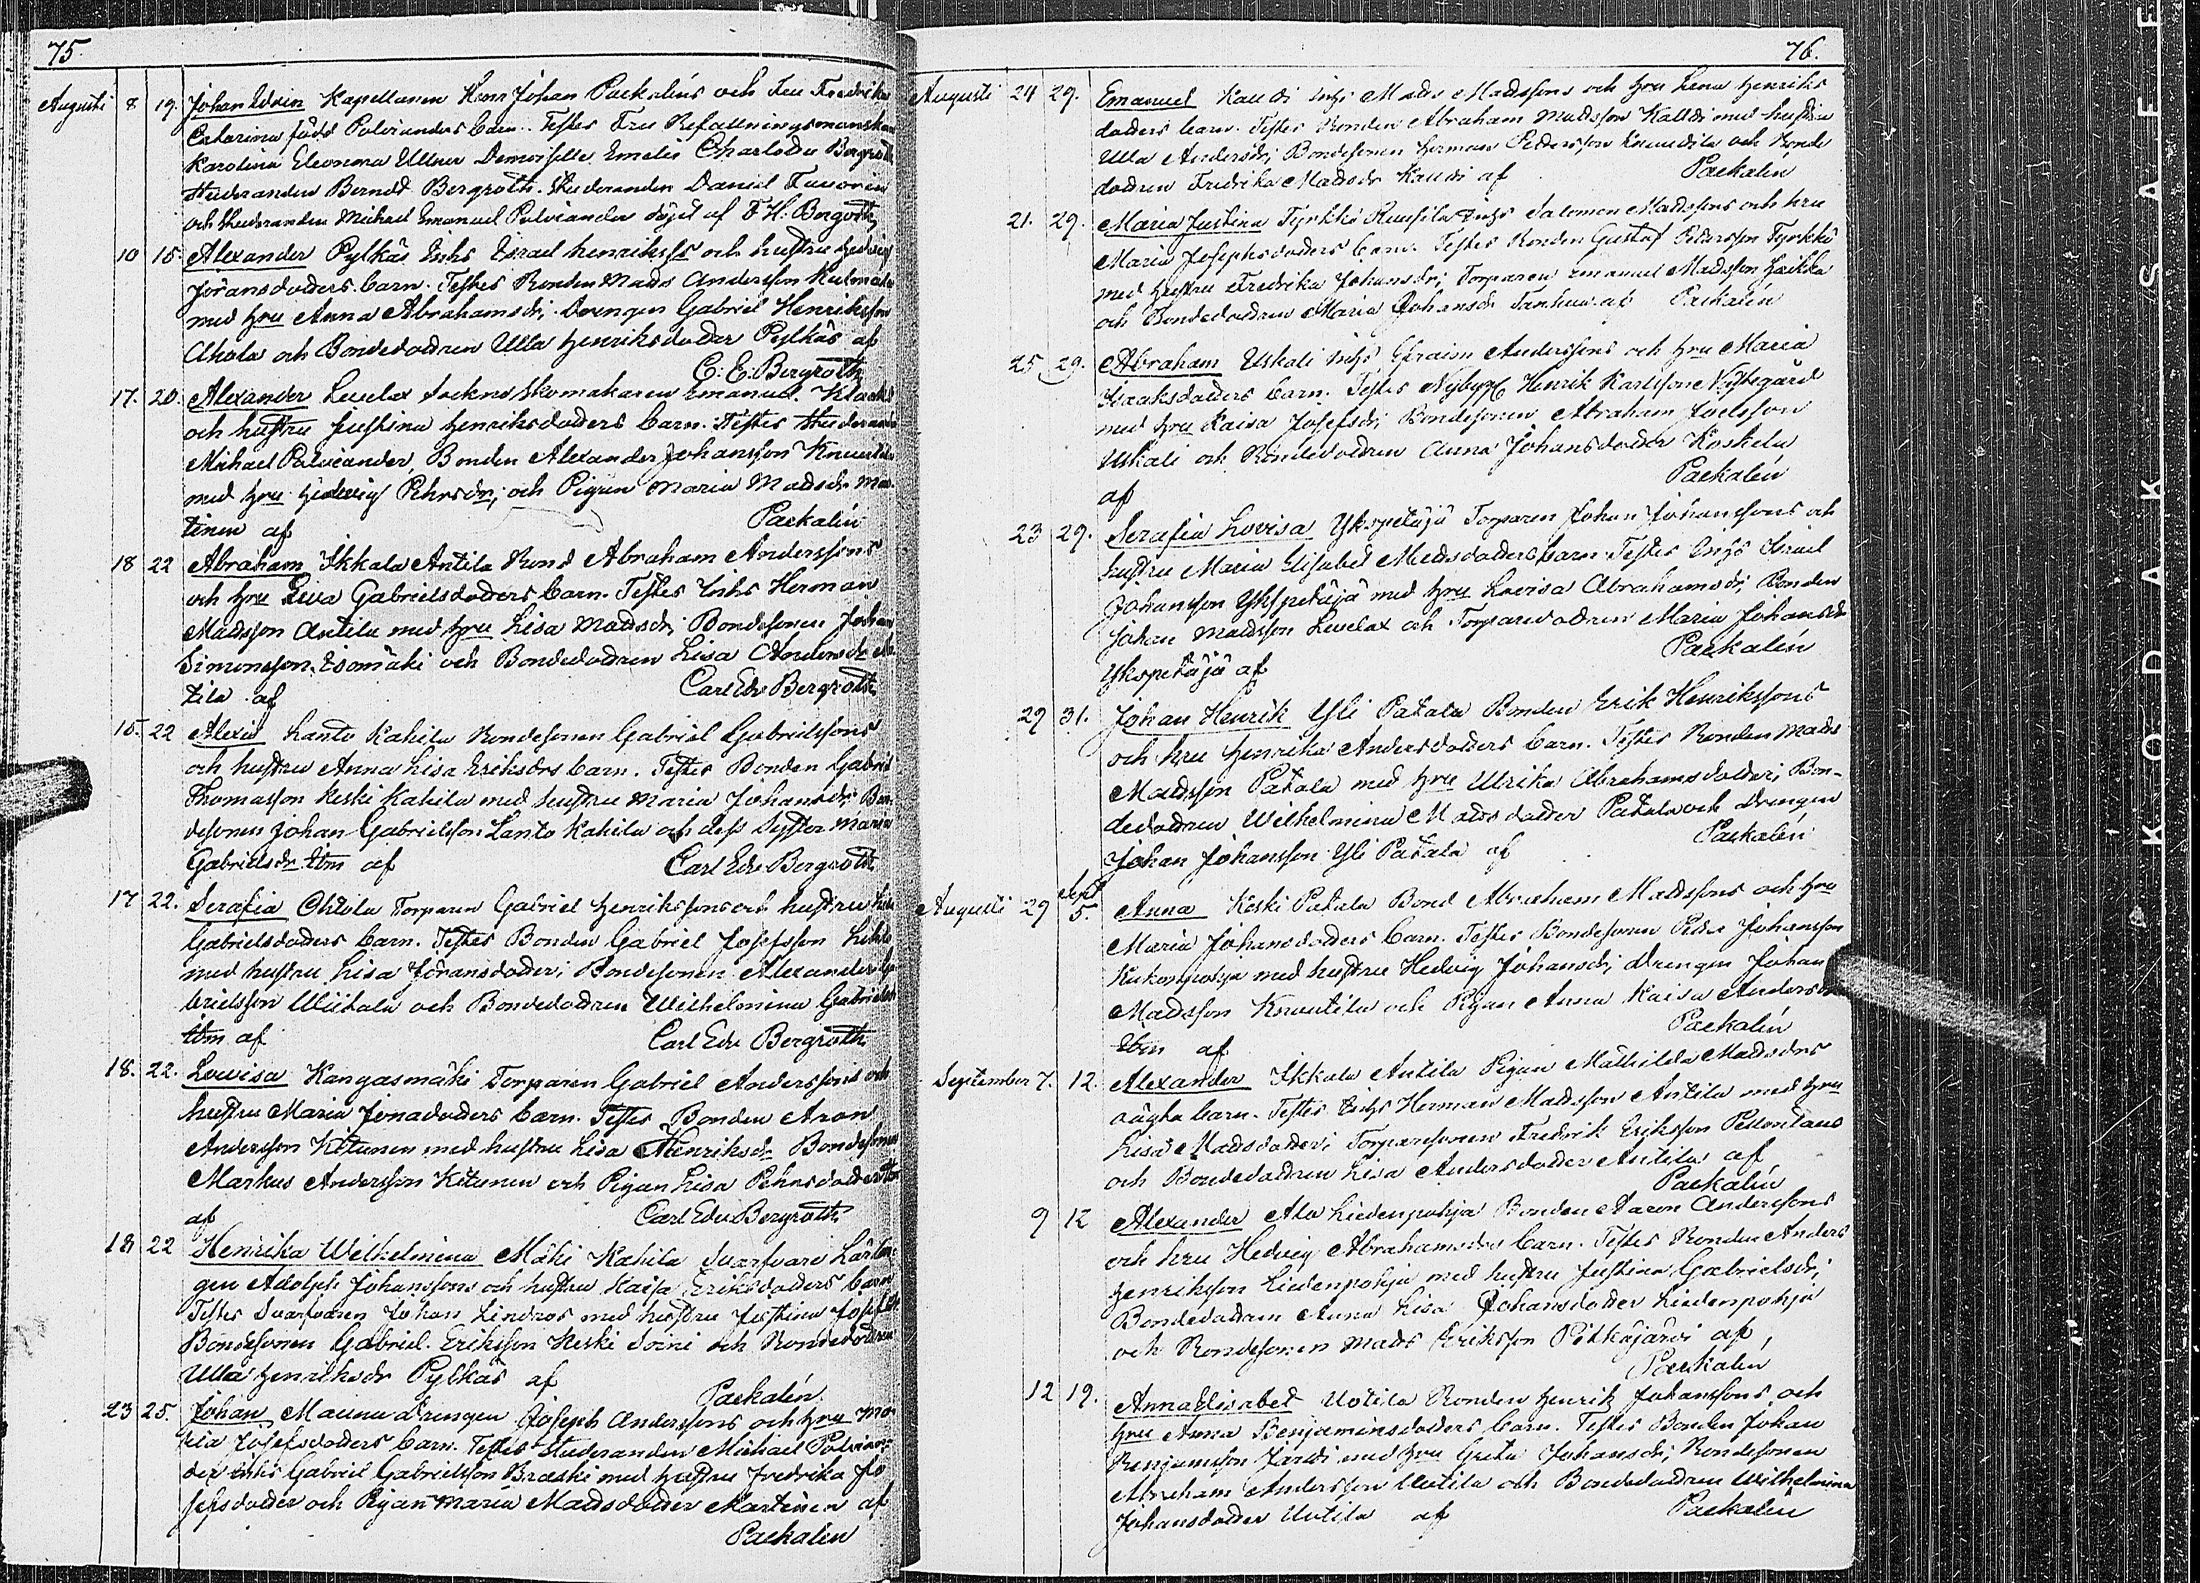 75.
Augusti 8 19. Johan Edvin Kapellanen Herr Johan Paekaléns och Fru Fredrika
Catarina född Polvianders barn. Testes Fru Befallningsmanskan
Karolina Eleonora Ullner Demoiselle Emelie Charlotta Bergroth
Studeranden Berndt Bergroth. Studeranden Daniel Favorin
och Studeranden Michael Emanuel Polviander döpt af F. H. Bergroth
10 15. Alexander Pylkäs Inhs Israel Henrikssons och hustru Hedvig
Jöransdotters barn. Testes Bonden Mads Andersson
med hru Anna Abrahamsdr; Drengen Gabriel Henriksson
Ahola och Bondedottren Ulla Henriksdotter Pylkäs af
C: E: Bergroth
17. 20. Alexander Levelax Sockneskomakaren Emanuel
och hustru Justina Henriksdotters barn. Testes Studeranden
Michael Polviander, Bonden Alexander Johansson Knuutila
med hru Hedevig Pehrsdr; och Pigan Maria Madsdr Mar
tinen af Paekalén
18 22 Abraham Ikkala Antila Bond Abraham Anderssons
och hru Lisa Gabrielsdotters barn. Testes Inhs Herman
Madsson Antila med hru Lisa Madsdr; Bondesonen Johan
Simonsson Isomäki och Bondedottren Lisa Andersdr An
tila af Carl Edv Bergroth
15. 22 Alexis Lanto Kahila Bondesonen Gabriel Gabrielssons
och hustru Anna Lisa Eriksdrs barn. Testes Bonden Gabriel
Thomasson Keski Kahila med hustru Maria Johansdr; Bon
desonen Johan Gabrielsson Lanto Kahila och dess Syster Maria
Gabrielsdr ibm af Carl Edv Bergroth
17 22. Serafia Ohtola Torparen Gabriel Henrikssons och hustru
Gabrielsdotters barn. Testes Bonden Gabriel Josefsson
med hustru Lisa Jöransdotter; Bondesonen Alexander Ga
brielsson Wiitala och Bondedottren Wilhelmina Gabrielsdr
ibm af Carl Edv Bergroth
18. 22. Lovisa Kangasmäki Torparen Gabriel Anderssons och
hustru Maria Jonadotters barn. Testes Bonden Aron
Andersson Kitunen med hustru Lisa Henriksdr Bondesonen
Markus Andersson Kitunen och Pigan Lisa Pehrsdotter ibm
af Carl Edv Bergroth
18 22 Henrika Wilhelmina Mäki Kahila Svarfvare Lärlin
gen Adolph Johanssons och hustru Kaisa Eriksdotters barn
Testes Svarfvaren Johan Lindros med hustru Justina Josefsdr
Bondesonen Gabriel Eriksson Keski Soini och Bondedottren
Ulla Henriksdr Pylkäs af Paekalén.
23 25. Johan Maunu drengen Joseph Anderssons och hru Ma
ria Josefsdotters barn. Testes Studeranden Michael Polvian
der Inhs Gabriel Gabrielsson Braski med hustru Fredrika Jo
sefsdotter och Pigan Maria Madsdotter Martinen af
Paekalén
76.
Augusti 24 29. Emanuel Kaudi Inhs Mads Madssons och hru Lena Henriks
dotters barn. Testes Bonden Abraham Madsson Kaudi med hustru
Ulla Andersdr; Bondesonen Herman Pettersson Knuutila och Bonde
dottren Fredrika Madsdr Kaudi af Paekalén
21. 29. Maria Justina Tyrkkö Ruusila Inhs Salomon Madssons och hru
Maria Josephsdotters barn. Testes Bonden Gustaf Pettersson Tyrkkö
med hustru Fredrika Johansdr; Torparen Emanuel Madsson Haikka
och Bondedottren Maria Johansdr Tanhua af Paekalén
25 29. Abraham Uskali Inhs Efraim Anderssons och hru Maria
Isaaksdotters barn. Testes Nybygg Henrik Karlsson Nybygård
med hru Kaisa Josefsdr; Bondesonen Abraham Joelsson
Uskali och Bondedottren Anna Johansdotter Koskela
af Paekalén
23 29. Serafia Lovisa Ykspetäjä Torparen Johan Johanssons och
hustru Maria Elisabet Madsdotters barn. Testes Inhs Israel
Johansson Ykspetäjä med hru Lovisa Abrahamsdr; Bonden
Johan Madsson Levelax och Torparedottren Maria Johansdr
Ykspetäjä af Paekalén
29 31. Johan Henrik Yli Patala Bonden Erik Henrikssons
och hru Henrika Andersdotters barn. Testes Bonden Mads
Madsson Patala med hru Ulrika Abrahamsdotter; Bon-
dedottren Wilhelmina Madsdotter Patala och Drengen
Johan Johansson Yli Patala af Paekalén
Augusti 29 Sept 5. Anna Keski Patala Bond Abraham Madssons och hru
Maria Johansdotters barn. Testes Bondesonen Peter Johansson
Kukonpohja med hustru Hedvig Johansdr; Drengen Johan
Madsson Knuutila och Pigan Anna Kaisa Andersdr
ibm af Paekalén
September 7. 12. Alexander Ikkala Antila Pigan Mathilda Madsdrs
oägta barn. Testes Inhs Herman Madsson Antila med hru
Lisa Madsdotter; Torparesonen Fredrik Eriksson
och Bondedottren Lisa Andersdotter Antila af
Paekalén
9 12 Alexander Ala Liedenpohja Bonden Aaron Anderssons
och hru Hedvig Abrahamsdrs barn. Testes Bonden Anders
Henriksson Liedenpohja med hustru Justina Gabrielsdr;
Bondedottren Anna Lisa Johansdotter Liedenpohja
och Bondesonen Mads Eriksson Pitkäjärvi af,
Paekalén
12 19. Anna Elisabet Uotila Bonden Henrik Johanssons och
hru Anna Benjaminsdotters barn. Testes Bonden Johan
Benjamsson Jardi med hru Greta Johansdr; Bondesonen
Abraham Andersson Uotila och Bondedottren Wilhelmina
Johansdotter Uotila af Paekalén
KODAK SAFE